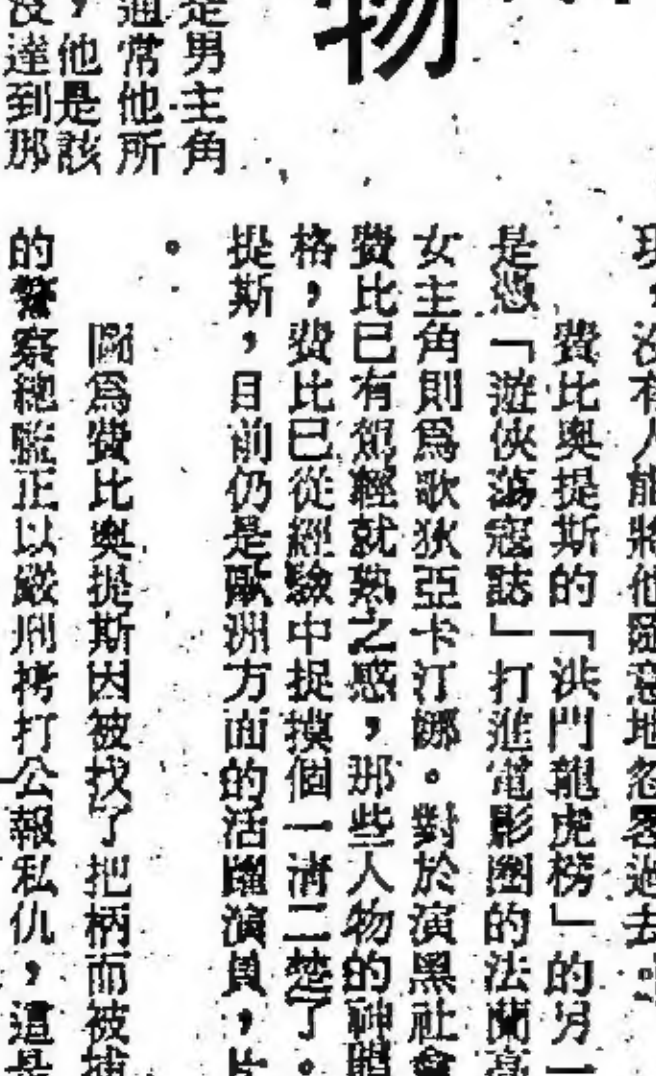 物
是男主角
通常他所
，他是該
沒達到那
現，沒有人能將他隨意地忽畧過去
費比奧提斯的「洪門龍虎榜」的另一
是憑「遊俠蕩寇誌」打進電影圈的法蘭高
女主角則爲歌狄亞卡汀娜。對於演黑社會
費比已有駕輕就熟之感，那些人物的神
格，費比已從經驗中捉摸個一清二楚了。
提斯，目前仍是歐洲方面的活躍演員，片
。
爲費比奧提斯因被找了把柄而被捕
的警察總監正以嚴刑拷打公報私仇，這是